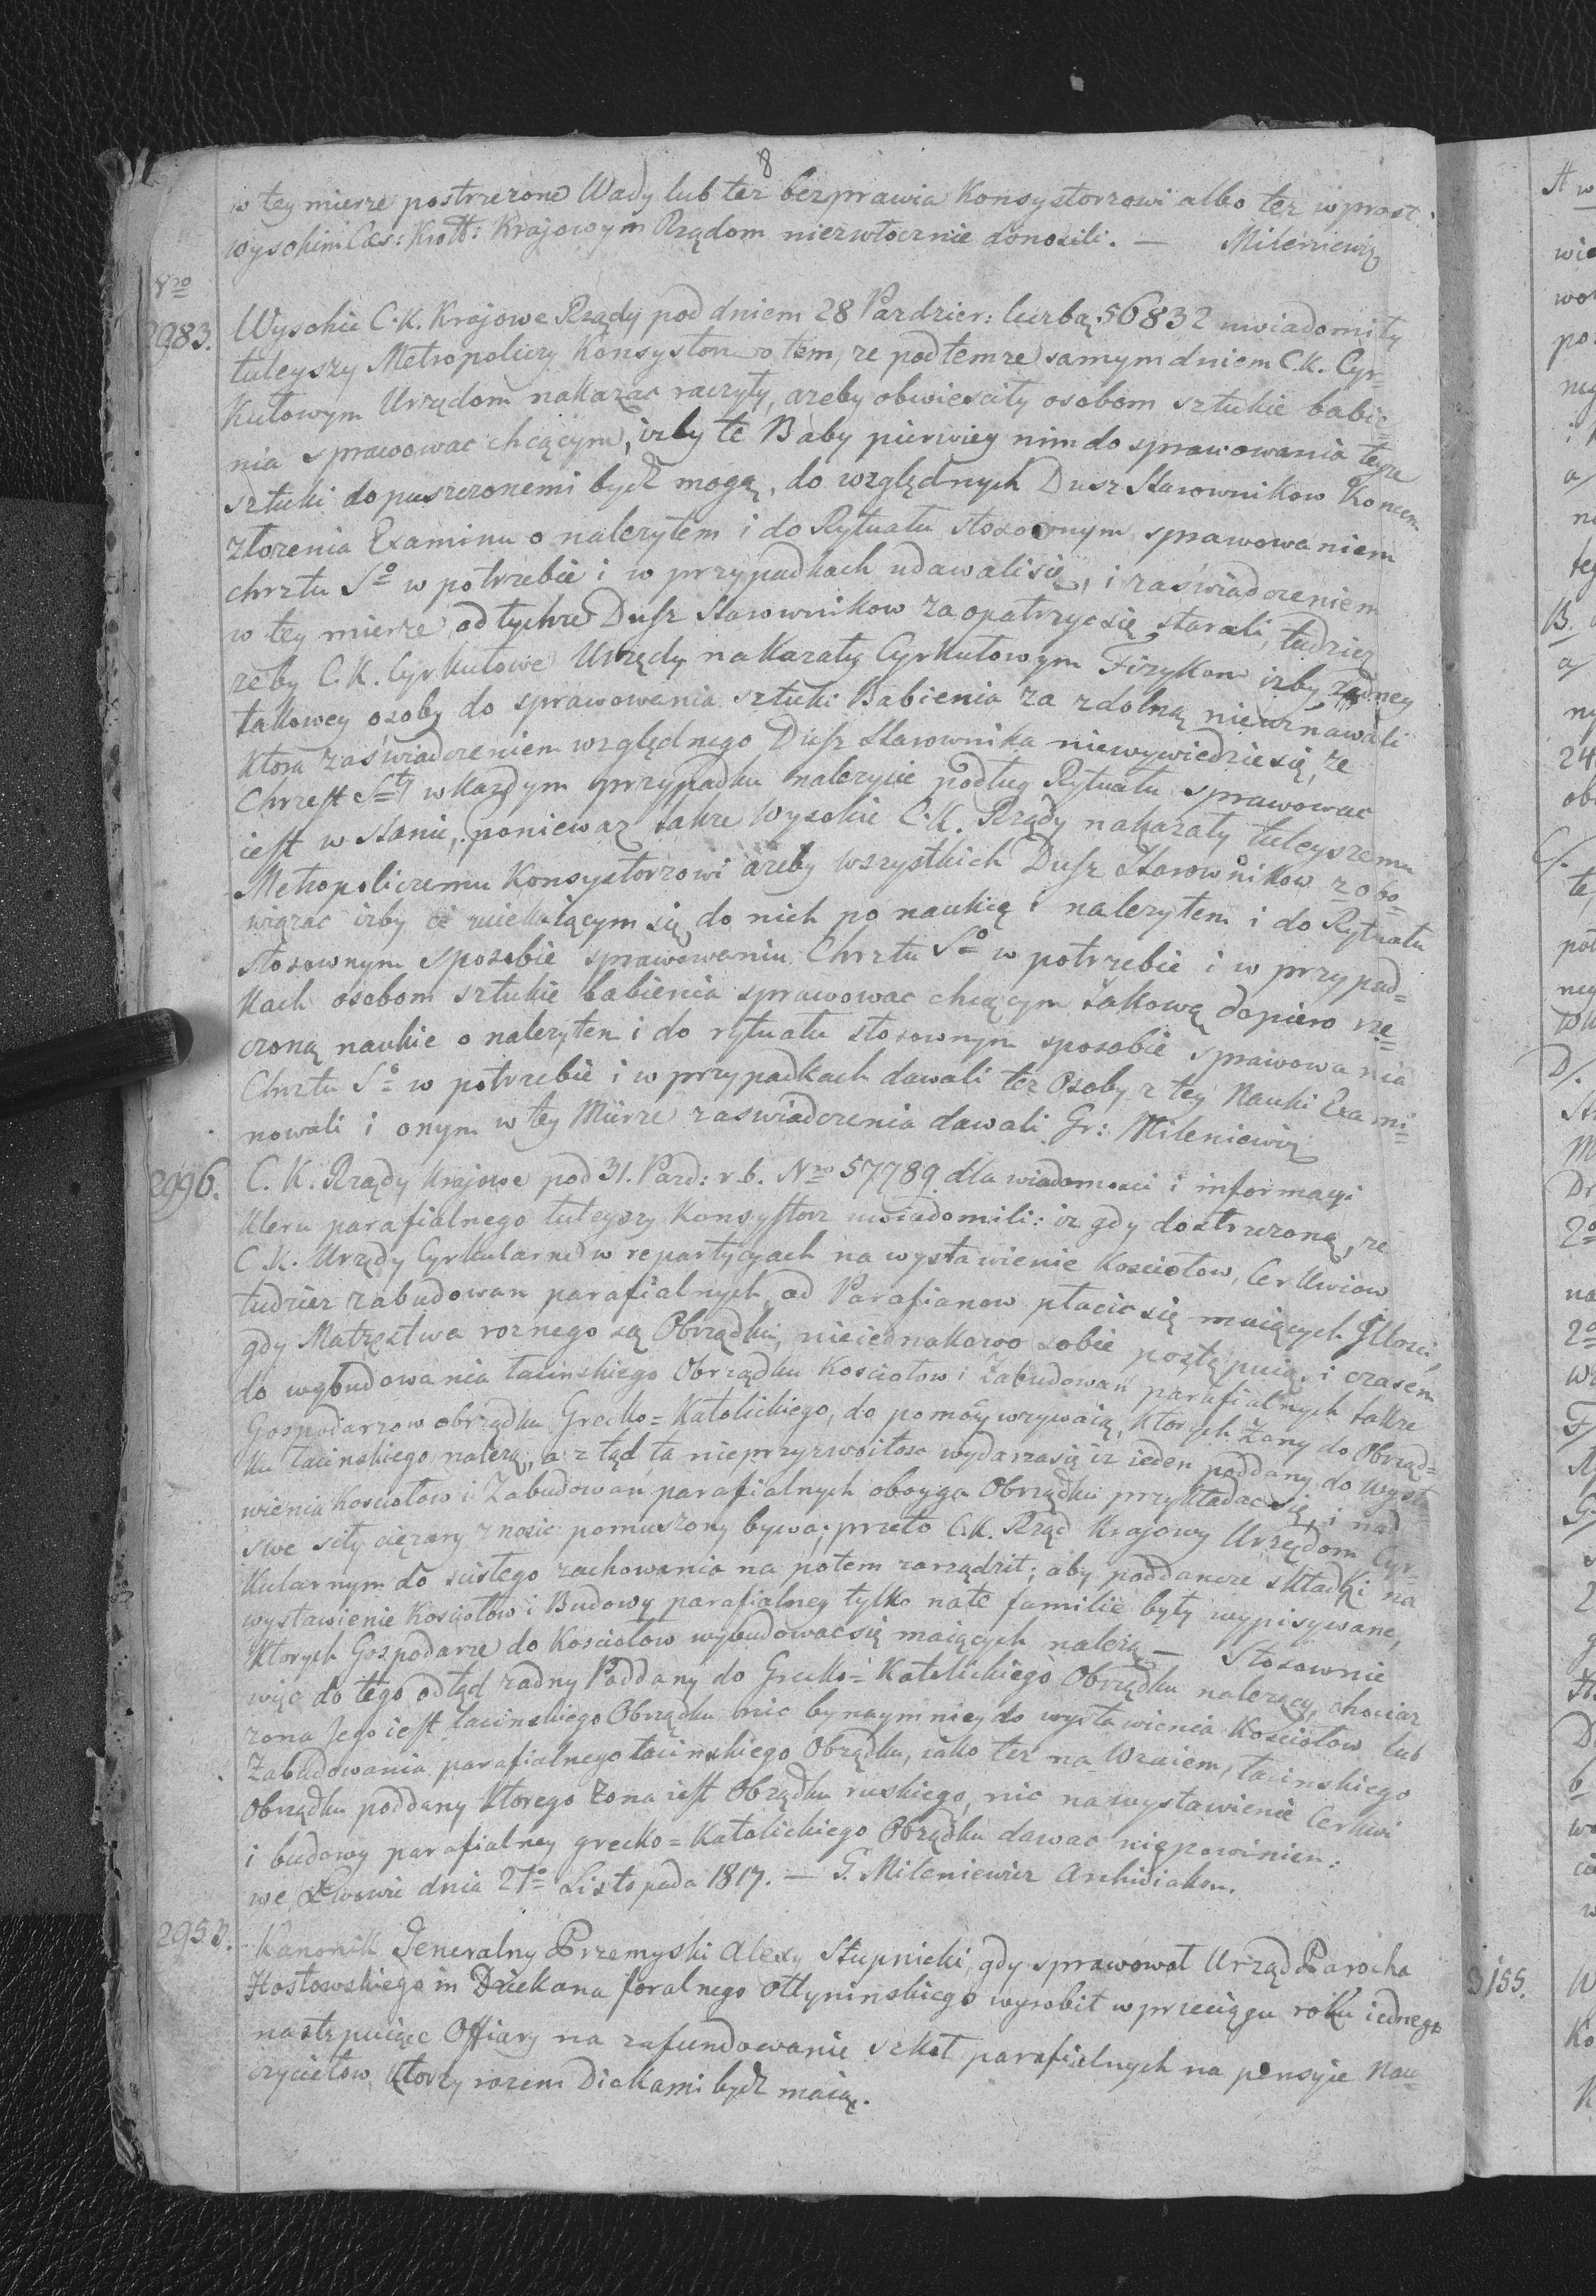 8
w tey mierze postrzezone Wady lub tez bezprawia Konsystorzowi albo tez wprost
wysokim Ces: Krolł: Krajowym Rządom niezwłocznie donosili. — Mileniewicz
Nro
2983. Wysokie C. K. Krajowe Rządy pod dniem 28 Pazdzier: liczbą 56832 uwiadomiły
tuteyszy Metropoliczy Konsystorz o tem, ze pod temze samym dniem C. K. Cyr=
kułowym Urzędom nakazac raczyły, azeby obwiesciły osobom sztukie babie=
nia sprawowac chcącym, izby te Baby pierwiey nim do sprawowania teyze
sztuki dopuszczonemi bydź mogą, do względnych Dusz Starownikow koncem
złozenia Examinu o nalezytem i do Rytuału stosownym sprawowaniem
chrztu So w potrzebie i w przypadkach udawali się, i zaświadczeniem
w tey mierze od tychze Dusz Starownikow zaopatrzyc się starali, tudziez
zeby C. K. Cyrkułowe Urzędy nakazały Cyrkułowym Fizykom izby zadney
takowey osoby do sprawowania sztuki Babienia za zdolną nieuznawali
ktora zaświadczeniem względnego Dusz Starownika niewywiedzie się, ze
Chrzest Sty w kazdym przypadku nalezycie podług Rytuału sprawowac
iest w stanie, poniewaz takze wysokie C. K. Rządy nakazały tuteyszemu
Metropoliczemu Konsystorzowi azeby wszystkich Dusz Starownikow zobo=
wiązac izby ci uciekaiącym się do nich po naukię i nalezytem i do Rytuału
stosownym sposobie sprawowaniu Chrztu So w potrzebie i w przypad=
kach osobom sztukie babienia sprawowac chcącym takową dopiero rze=
czoną naukie o nalezytem i do rytuału stosownym sposobie sprawowania
Chrztu So w potrzebie i w przypadkach dawali tez Osoby z tey Nauki Exami=
nowali i onym w tey Mierze zaswiadczenia dawali Gr: Mileniewicz
2996. C. K. Rządy Krajowe pod 31. Pazd: r. b. Nro 57789. dla wiadomosci i informacyi
kleru parafialnego tuteyszy Konsystorz uwiadomili: iz gdy dostrzezoną, ze
C. K. Urzędy Cyrkularne w repartycyach na wystawienie Kosciołow, Cerkwiow
tudziez zabudowan parafialnych od Parafianow płacic się maiących Ilosci,
gdy Małzęstwa roznego są Obrządku, nieiednakowo sobie postępuią, i czasem
do wybudowania łacinskiego Obrządku Kosciołow i Zabudowan parafialnych takze
Gospodarzow obrządku Grecko=Katolickiego, do pomocy wzywaią, ktorych Zony do Obrząd=
ku łacinskiego nalezą, a z tąd ta nieprzyzwoitosc wydarza się iz ieden poddany do wyst=
wienia Kosciołow i Zabudowan parafialnych oboyga Obrządku przykładac się, i nad
swe siły cięzary znosic pomuszony bywa; przeto C. K. Rząd Krajowy Urzędom Cyr=
kularnym do scisłego zachowania na potem zarządził; aby poddancze składki na
wystawienie Kosciołow i Budowy parafialney tylko na te familie były wypisywane,
ktorych Gospodarze do Kosciołow wybudowac się maiących nalezą — Stosownie
więc do tego odtąd zadny Poddany do Grecko=Katolickiego Obrządku nalezący, chociaz
zona Jego iest łacinskiego Obrządku nic bynaymniey do wystawienia Kosciołow lub
Zabudowania parafialnego łacinskiego Obrządku, iako tez na Wzaiem, łacinskiego
Obrządku poddany ktorego Zona iest Obrządku ruskiego, nic na wystawienie Cerkwi
i budowy parafialney grecko=Katolickiego Obrządku dawac niepowinien.
we Lwowie dnia 27o Listopada 1817. — G. Mileniewicz Archidiakon.
2953. Kanonik Jeneralny Przemyski Alexy Stupnicki, gdy sprawował Urząd Parocha
Hostowskiego in Dziekana foralnego Ottyninskiego wyrobił w przeciągu roku iednego
nastepuiące Offiary na zafundowanie szkoł parafialnych na pensyie Nau=
czycielow, ktorzy razem Diakami bydź maią.
3155.